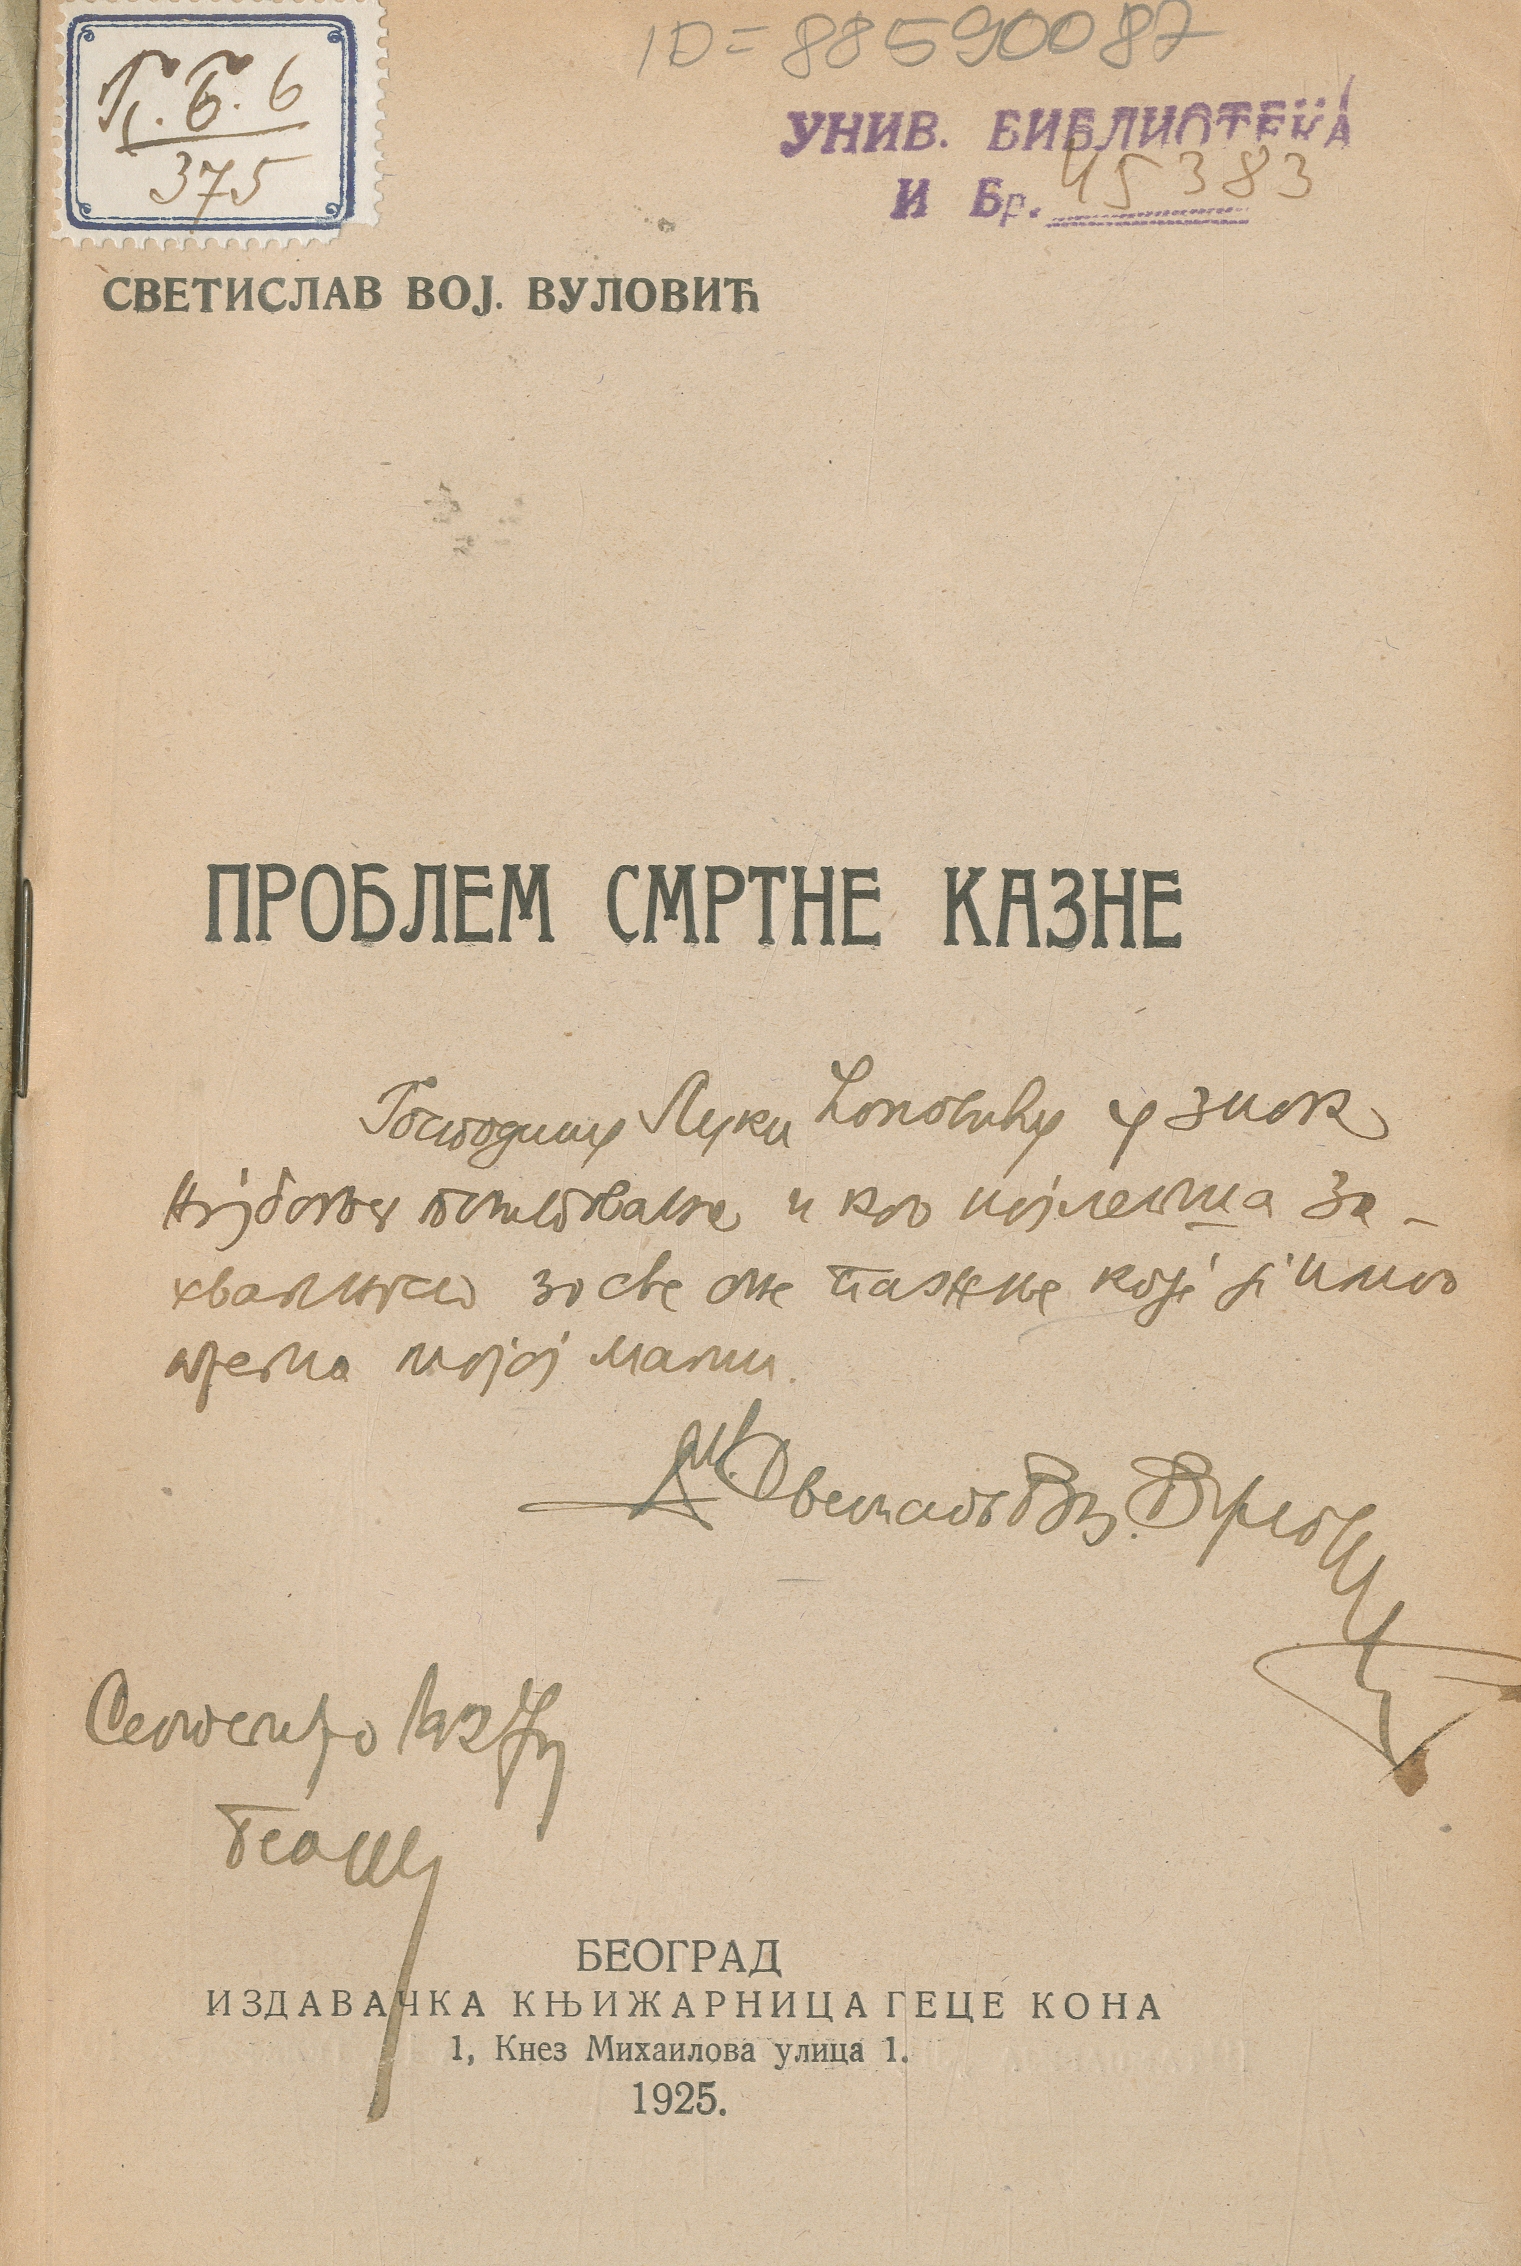 ID=88590087
Г. Б. 6
375
УНИВ. БИБЛИОТЕКА
И Бр. 45383
СВЕТИСЛАВ ВОЈ. ВУЛОВИЋ
ПРОБЛЕМ СМРТНЕ КАЗНЕ
Господину Луки у знак
поштовања и као најлепша за-
хвалност за све оне пажње које је имао
према мојој мајци.
Светислав Вој. Вуловић
БЕОГРАД
ИЗДАВАЧКА КЊИЖАРНИЦА ГЕЦЕ КОНА
1, Кнез Михаилова улица 1.
1925.